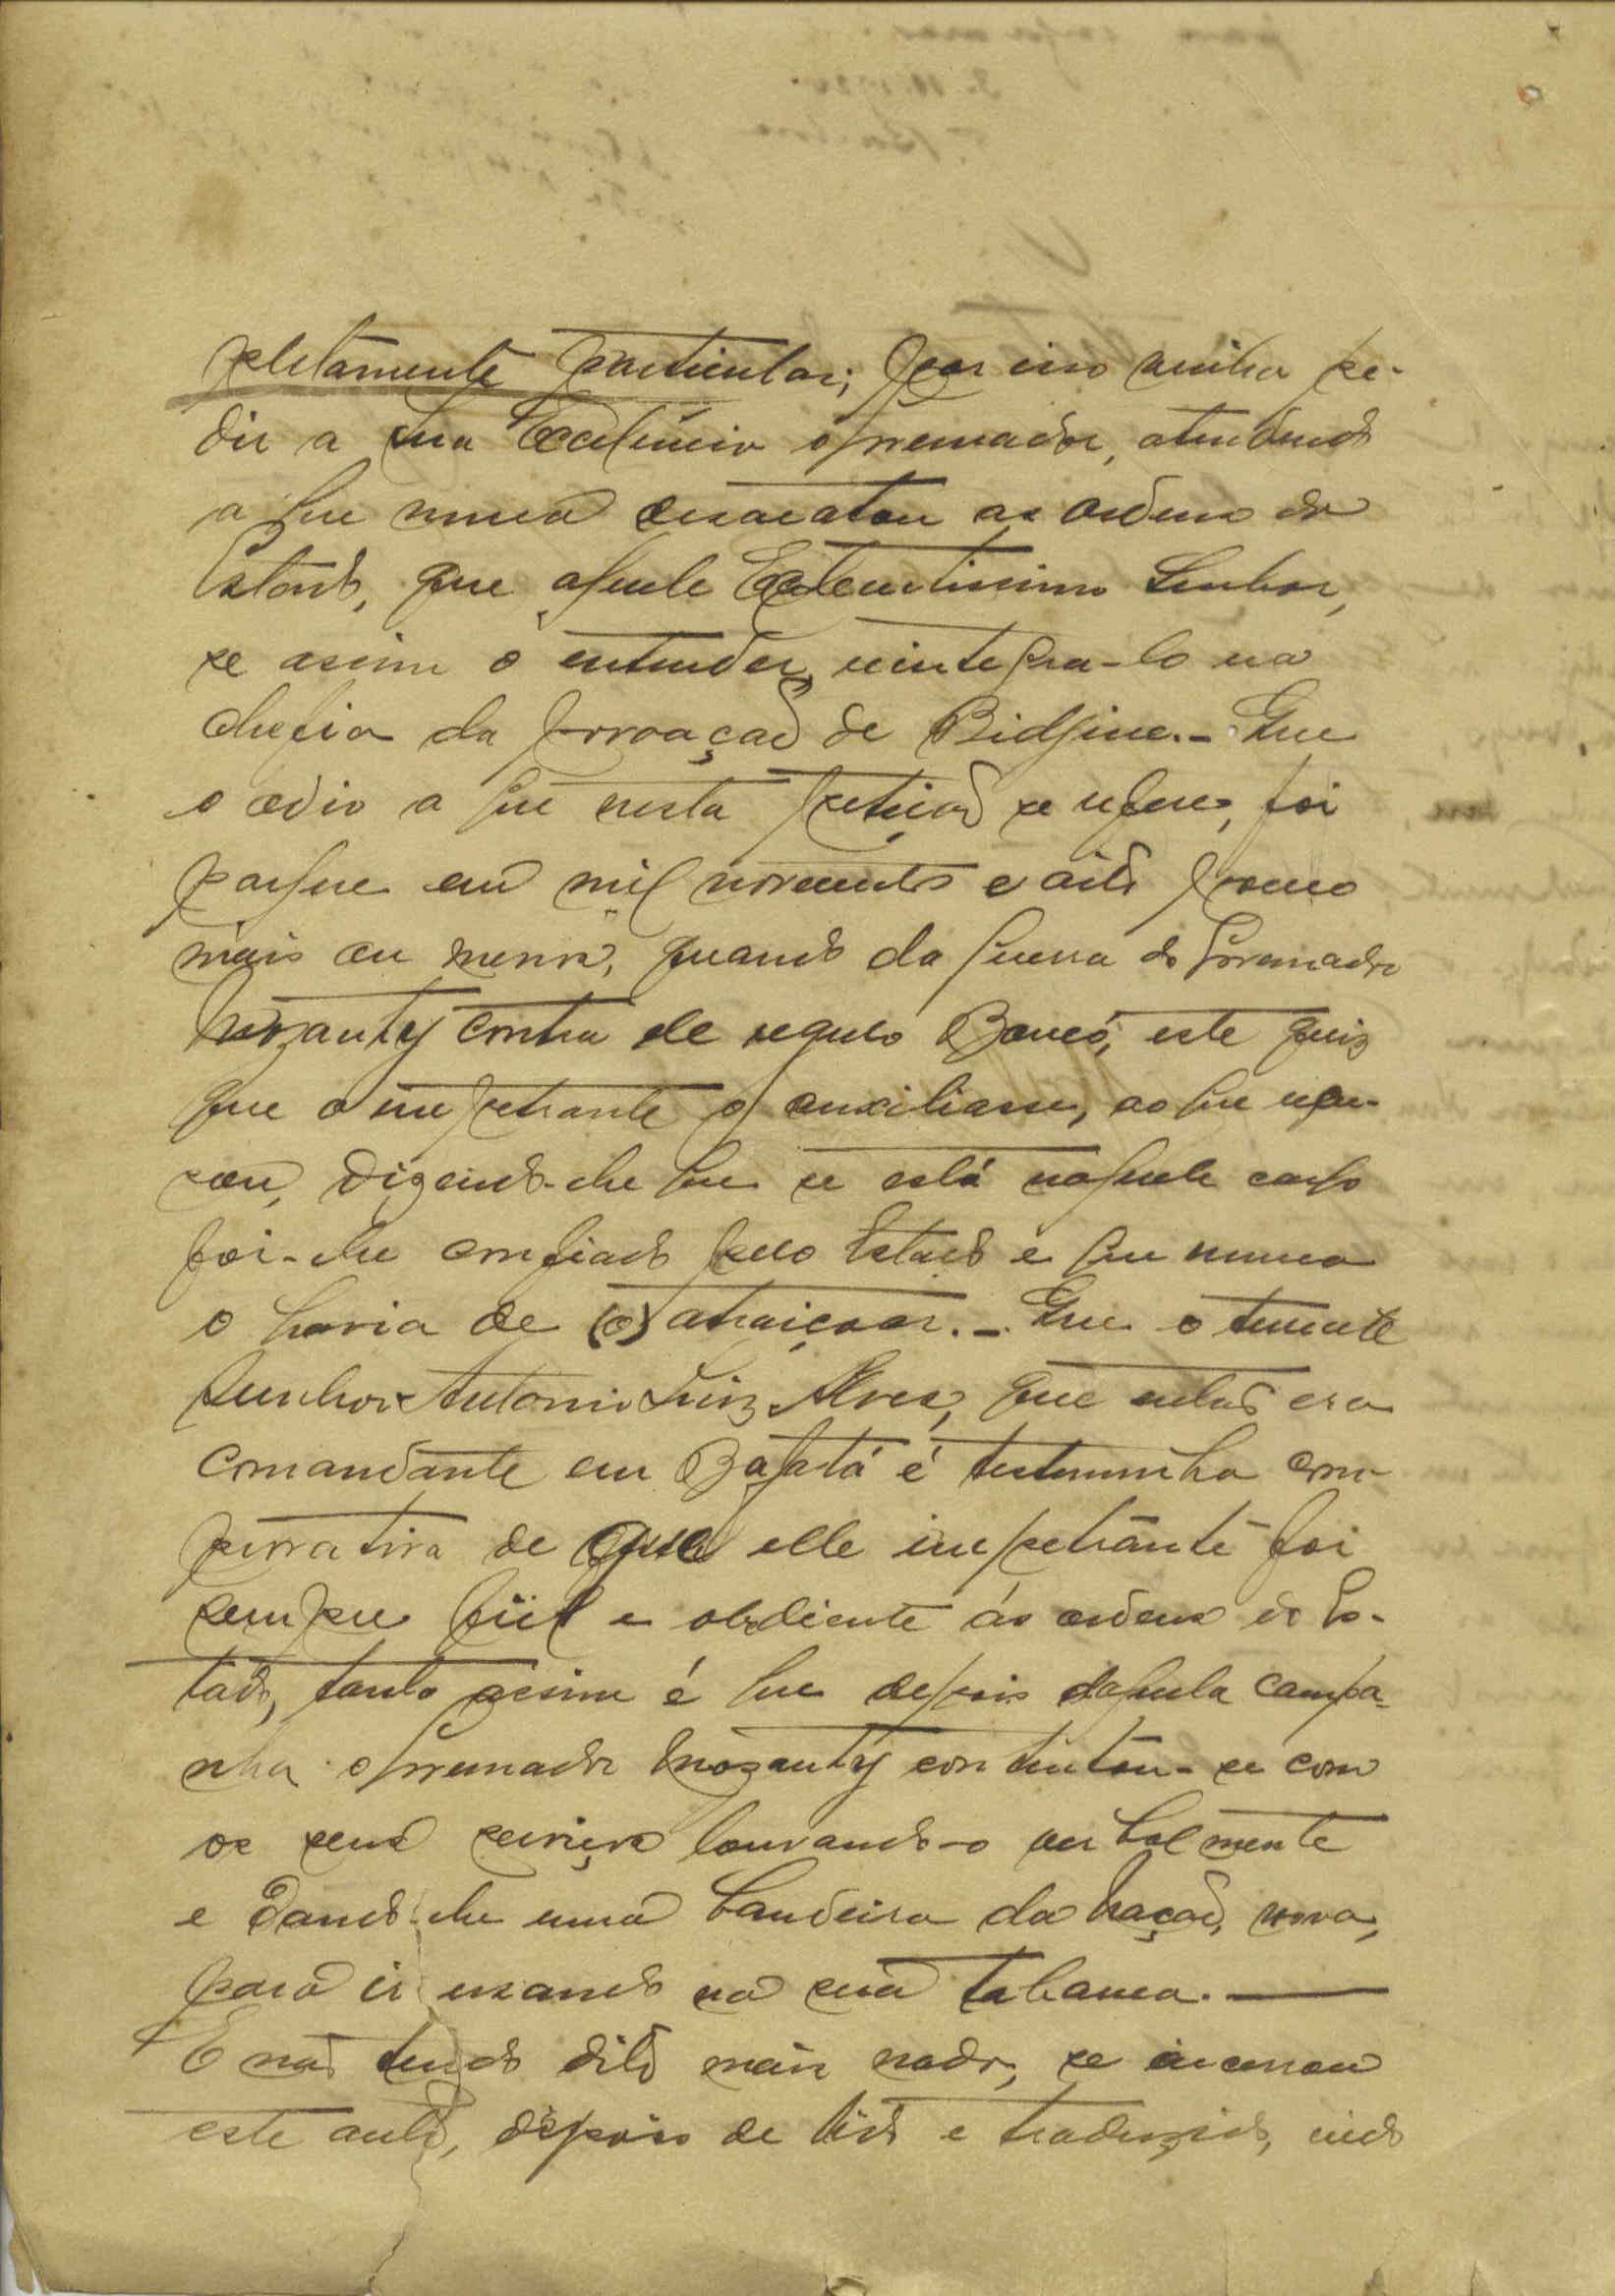 pletamente particular; por isso vinha pe-
dir a Sua Excelencia o governador, atendendo
a que nunca desacatou as ordens do
Estado, que aquele Excelentissimo Senhor,
se assim o entender, reintegra-lo na
chefia da povoação de Bidjine. - Que
o odio a que nesta petição se refere, foi
porque em mil novecentos e oito pouco
mais ou menos, quando da guerra do Governador
Muzanty contra ele regulo Boncó, este quiz
que o impetrante o auxiliasse, ao que recu-
sou, dizendo-lhe que se está naquele cargo
foi-lhe confiado pelo Estado e que nunca
o havia de (o) atraiçoar. - Que o tenente
Senhor Antonio Luiz Alves, que então era
comandante em Bafatá é testemunha com-
provativa de que elle impetrante foi
sempre fiel e obediente ás ordens do Es-
tado, tanto assim é que depois daquela campa-
nha o governador Muzanty contentou-se com
os seus serviços louvando-o verbalmente
e dando-lhe uma bandeira da Nação, nova,
para ir usando na sua tabanca.
E não tendo dito mais nada, se encerrou
este auto, depois de lido e traduzido, indo